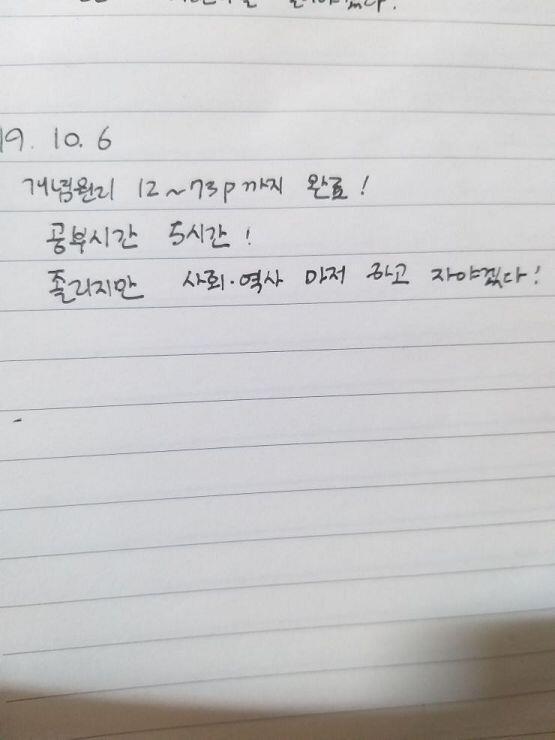 19. 10. 6
개념원리 12~73p까지 완료!
공부시간 5시간!
졸리지만 사회·역사 마저 하고 자야겠다!